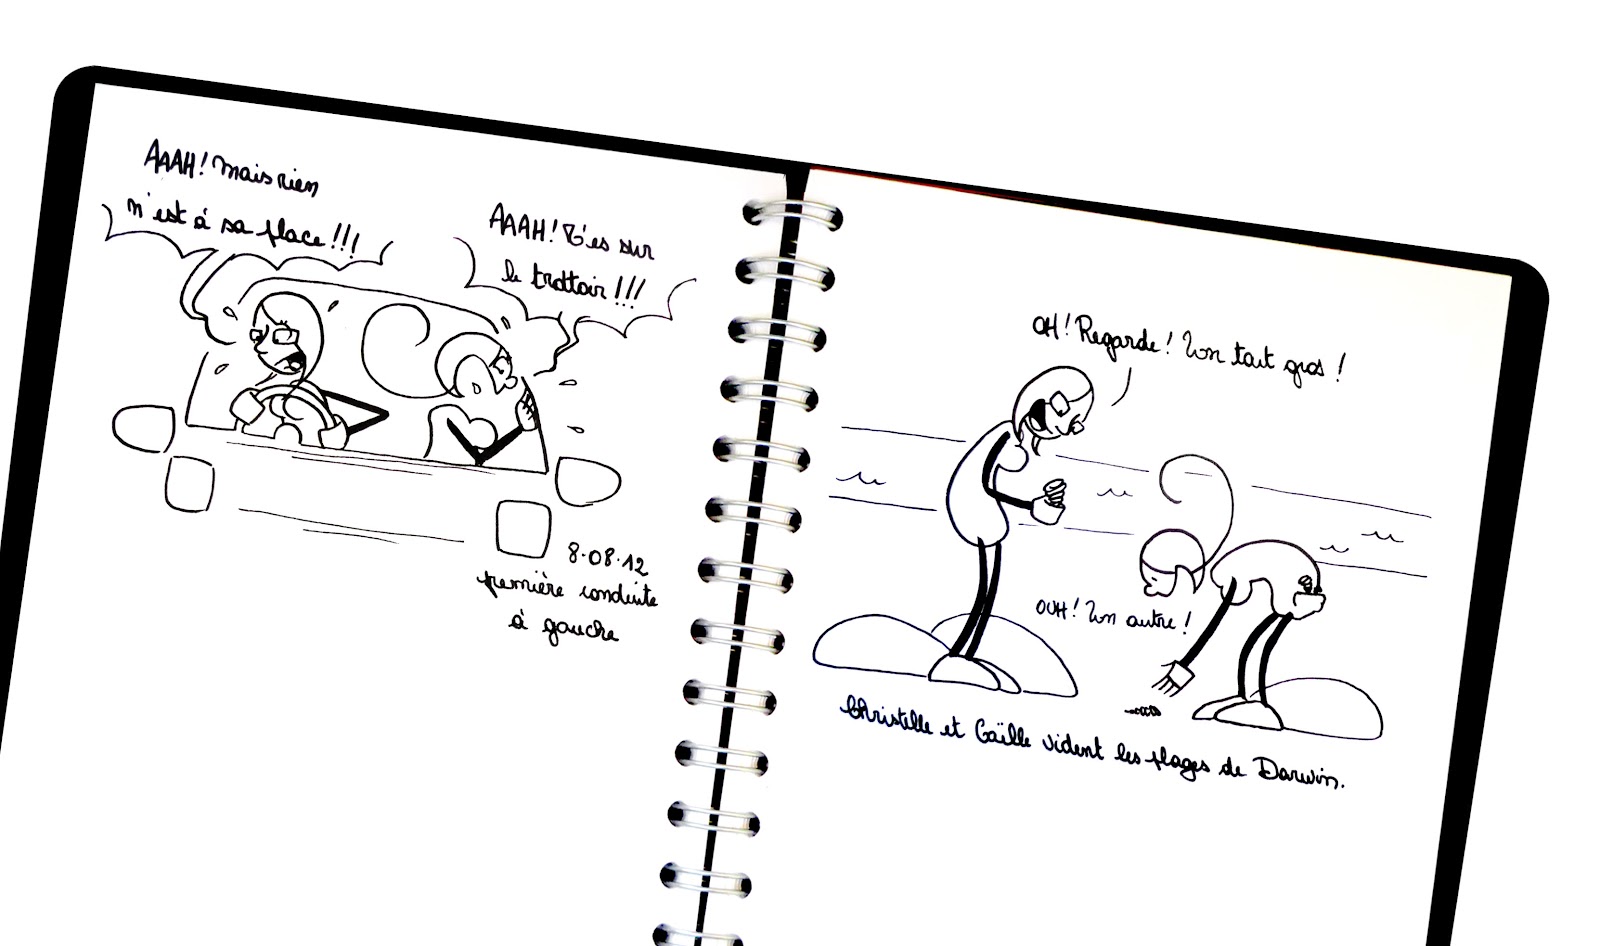 AAAH! Mais rien
n'est à sa place!!!
AAAH! T'es sur
le trottoir!!!
8.08.12
première conduite
à gauche
OH! Regarde! Un tout gros!
OUH! Un autre!
Christelle et Gaëlle vident les plages de Darwin.